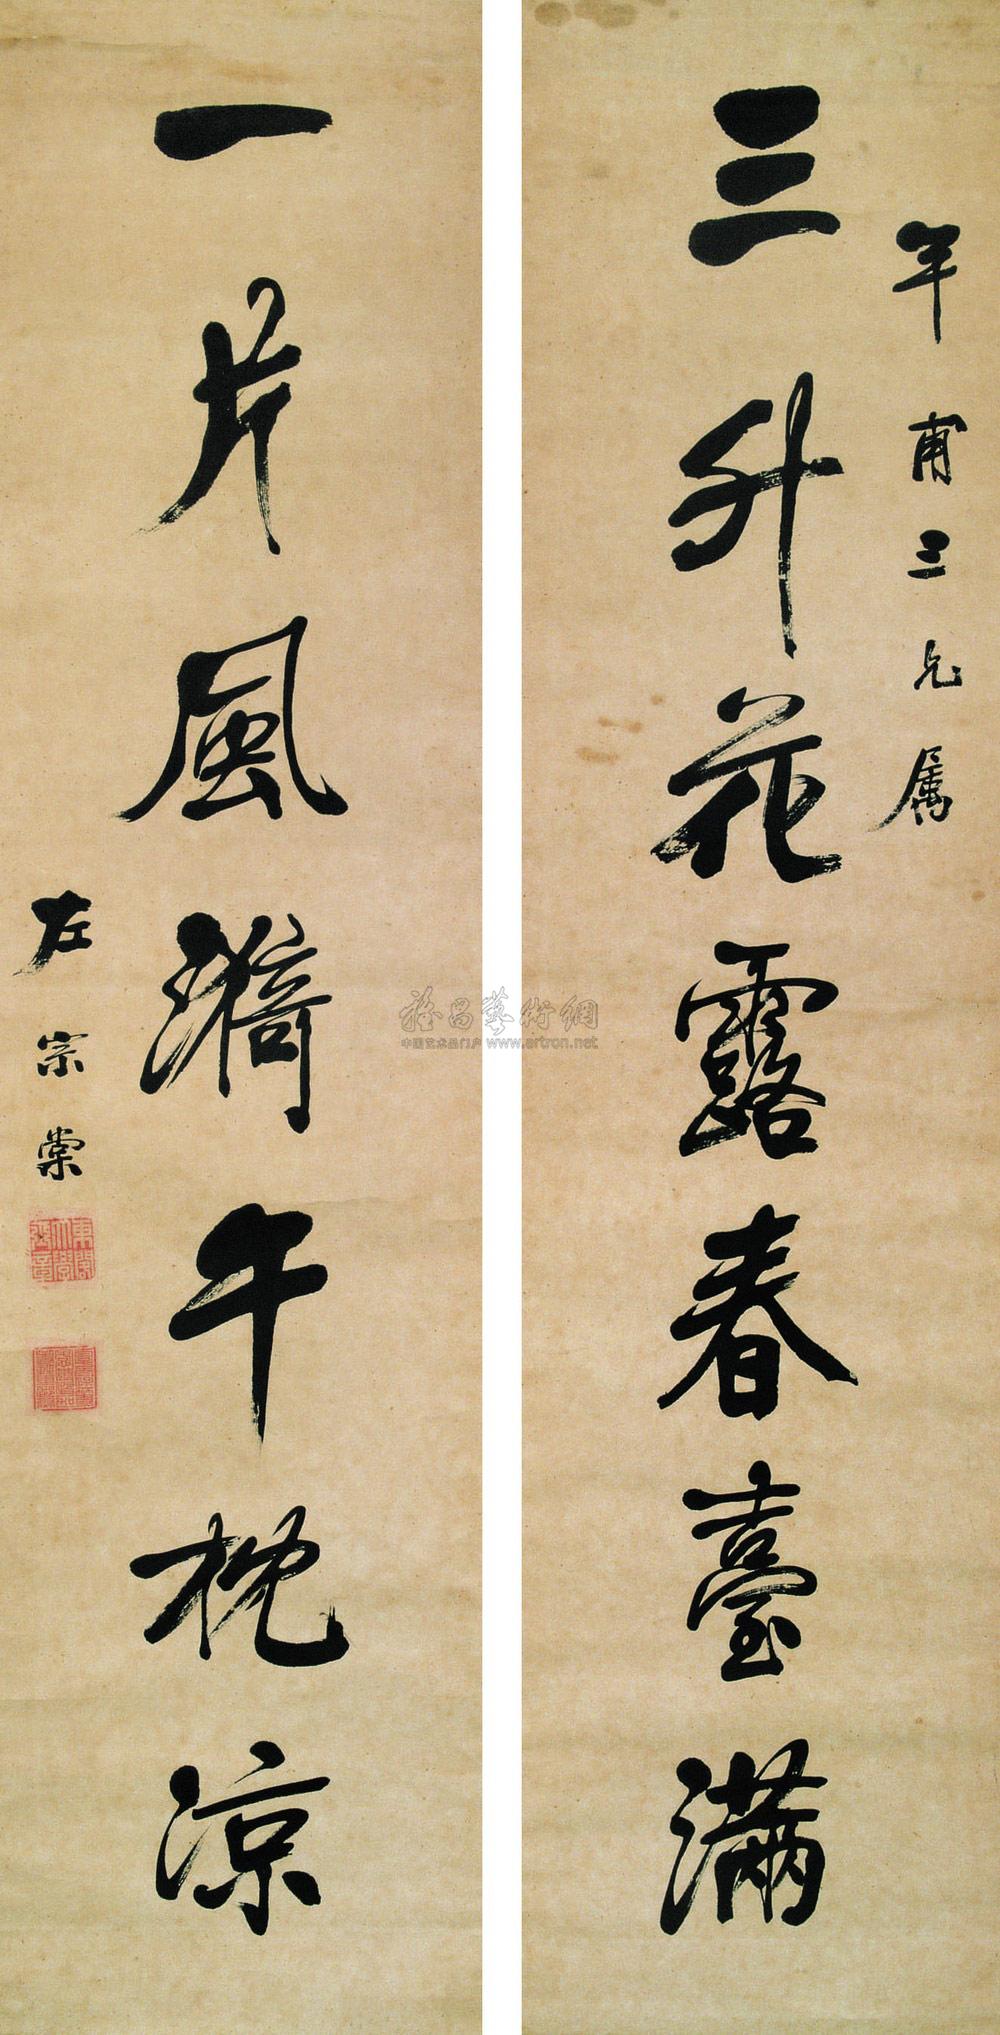 年甫三兄属
三升花露春臺滿
一片風漪午枕涼
左宗棠
雅昌藝術網
中国艺术品门户 www.artron.net